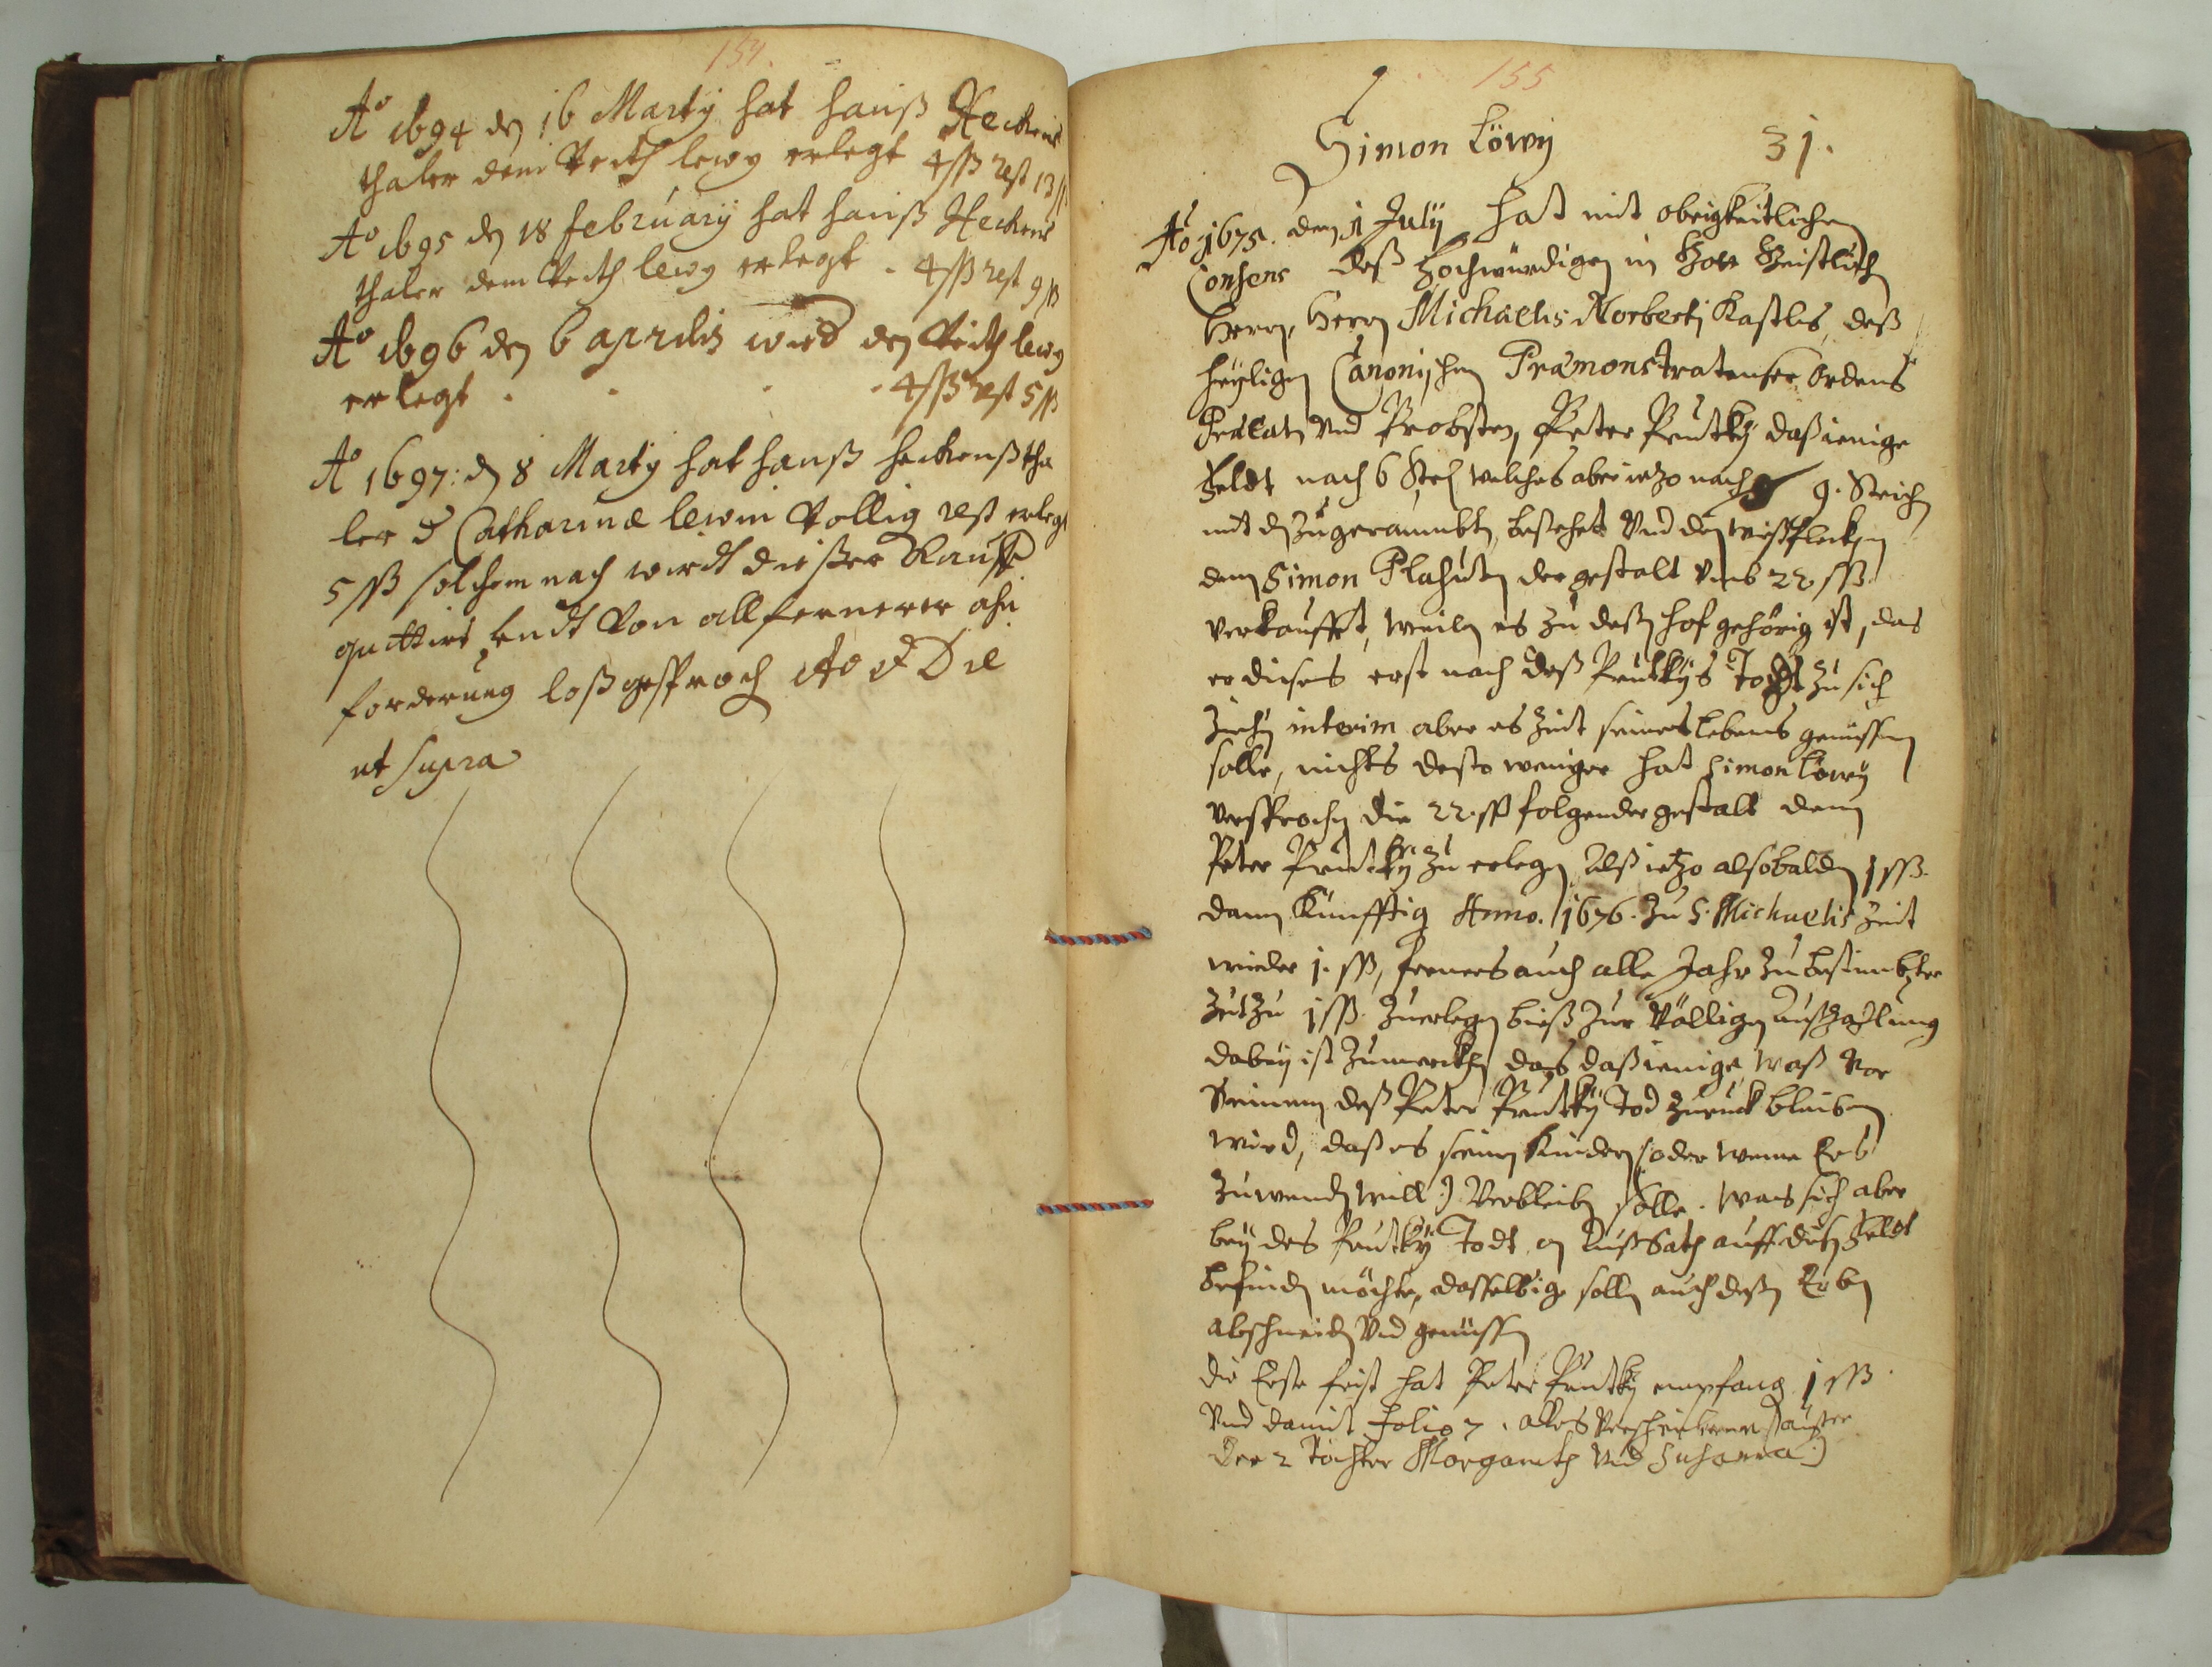 154.
Aº 1694 dẽ 16 Martÿ hat hanß Heckens
thaler dem Veith lewÿ erlegt 4 ßß rest 13 ßß
Aº 1695 dẽ 18 februarÿ hat hanß Heckens
thaler dem Veith lewÿ erlegt . 4 ßß rest 9 ßß
Aº 1696 den 6 aprilis wird den Veith lewÿ
erlegt . . . . 4 ßß rest 5 ßß
Aº 1697: dẽ 8 Martÿ hat hanß heckenßtha
ler d Catharinæ lewin Vollig rest erlegt
5 ßß solchem nach wirdt dießer Kauff
quittirt undt Von all fernerer ahn
forderung loßgesproch Ao et Die
ut supra
155
Simon Löwÿ 31.
Ao 1675. den 1 Julÿ hat mit obrigkeitlichen
Consens deß Hochwürdigen in Gott Geistlich
Herrn, Herrn Michaelis Norberti Kastles, deß
heÿligen Canonischen Præmonstratenser Ordens
Prælaten Und Probsten, Peter Prutkÿ daß ienige
Feldt nach 6 Str welches aber ietzo nach 9. Strich
mit dem Zugeraumbten bestehet Und den wißflecken
dem Simon Plahuten der gestalt Umb 22 ßß
verkaufft, weilen es zu deßen hof gehörig ist, das
er dieses erst nach deß Prutkÿs Todt zu sich
ziehen interim aber es Zeit seines Lebens genüssen
solle, nichts desto weniger hat Simon Löwÿ
versprochen die 22. ßß folgender gestalt dem
Peter Prutkÿ zu erlegen, Alß ietzo alsobalden 1 ßß.
dann Künfftig Anno. 1676. Zu S. Michaelis Zeit
wieder 1. ßß, ferners auch alle Jahr zu bestimbter
Zeit zu 1 ßß. Zuerlegen bieß Zur Völligen Außzahlung
dabeÿ ist Zumerkhen das daßienige waß Vor
Seinem deß Peter Prutkÿ Tod Zuruck bleiben
wird, daß es seinen Kindern oder weme Er es
Zuwenden will) Verbleiben solle. Was sich aber
beÿ des Prutkÿ Todt an Außsath auff dießen Feldt
befinden möchte, dasselbige sollen auch deßen Erben
abschneiden Und genüssen
die Erste frist hat Peter Prutkÿ empfang 1 ßß.
Und damit Folio 7. alles Verschrieben außer
der 2 Töchter Morgareth Und Susanna)